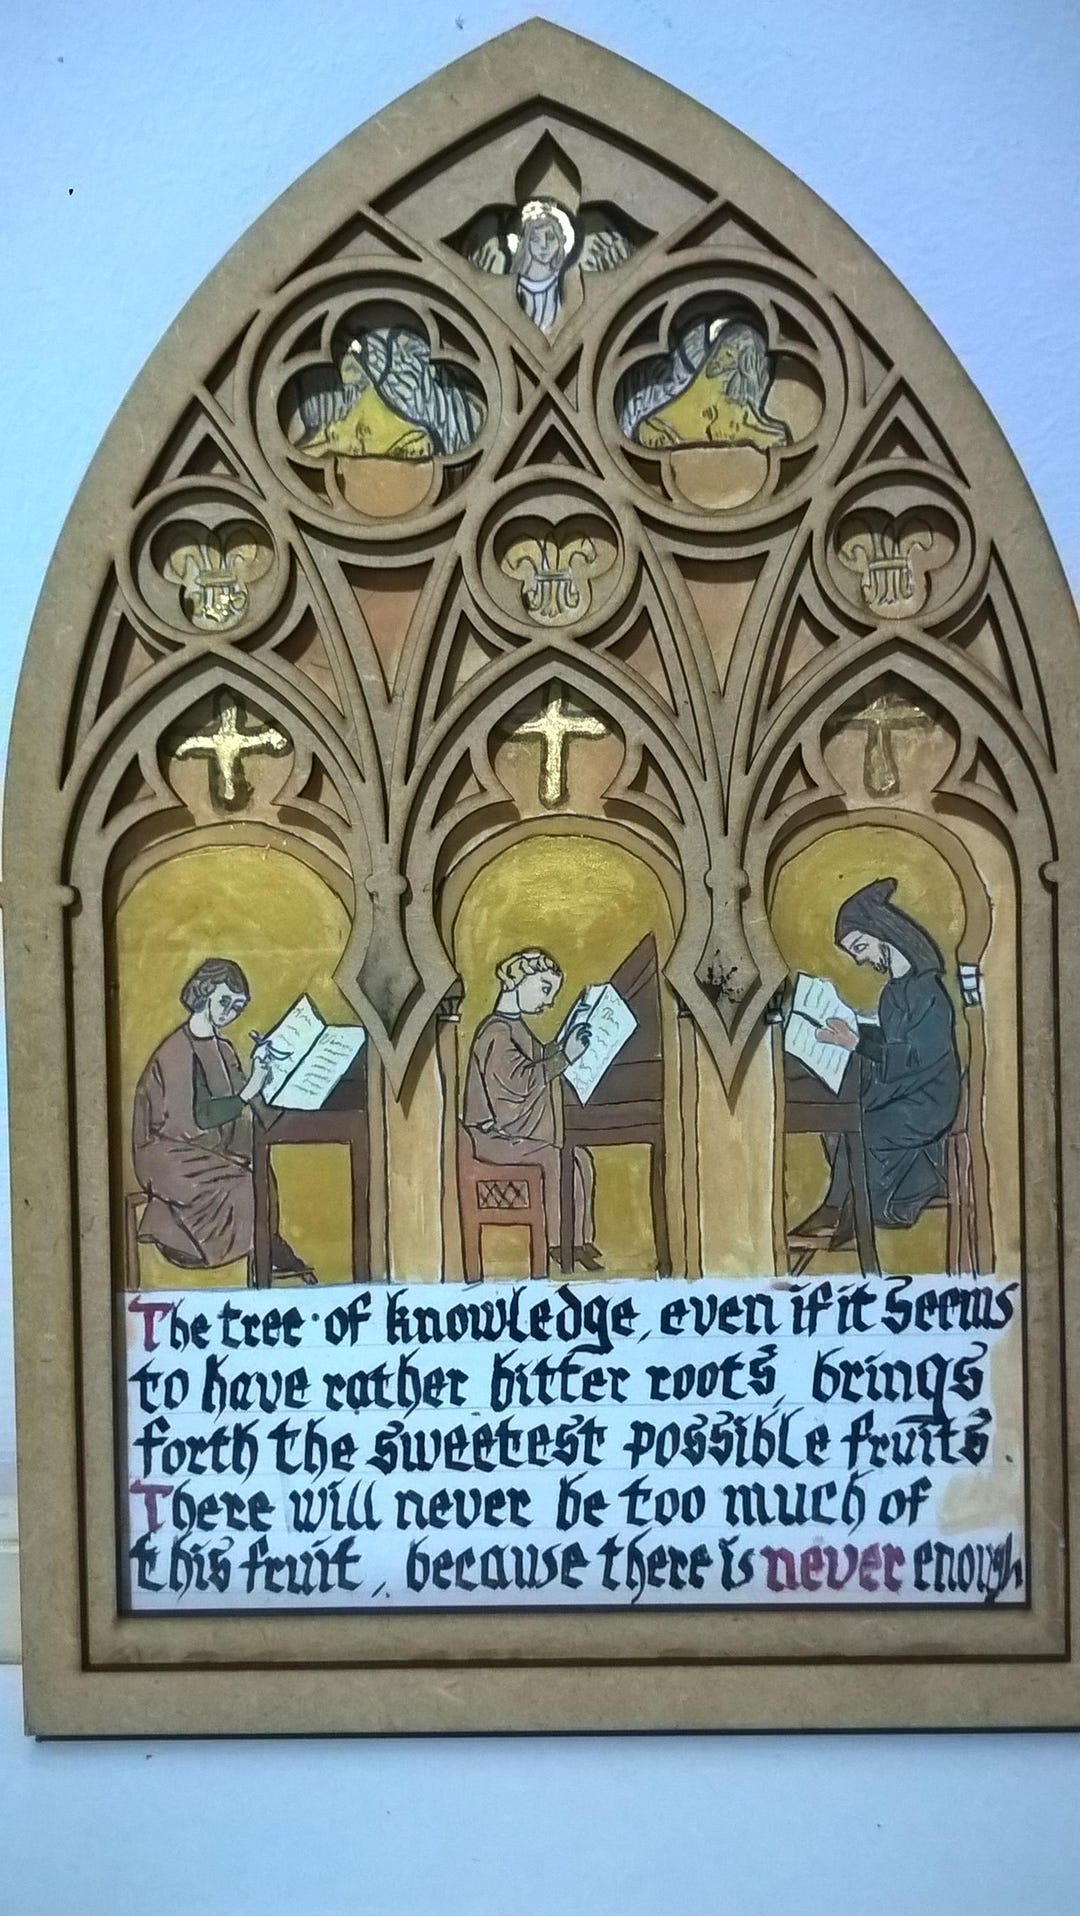 The tree of knowledge, even if it seems
to have rather bitter roots, brings
forth the sweetest possible fruits.
There will never be too much of
this fruit, because there is never enough